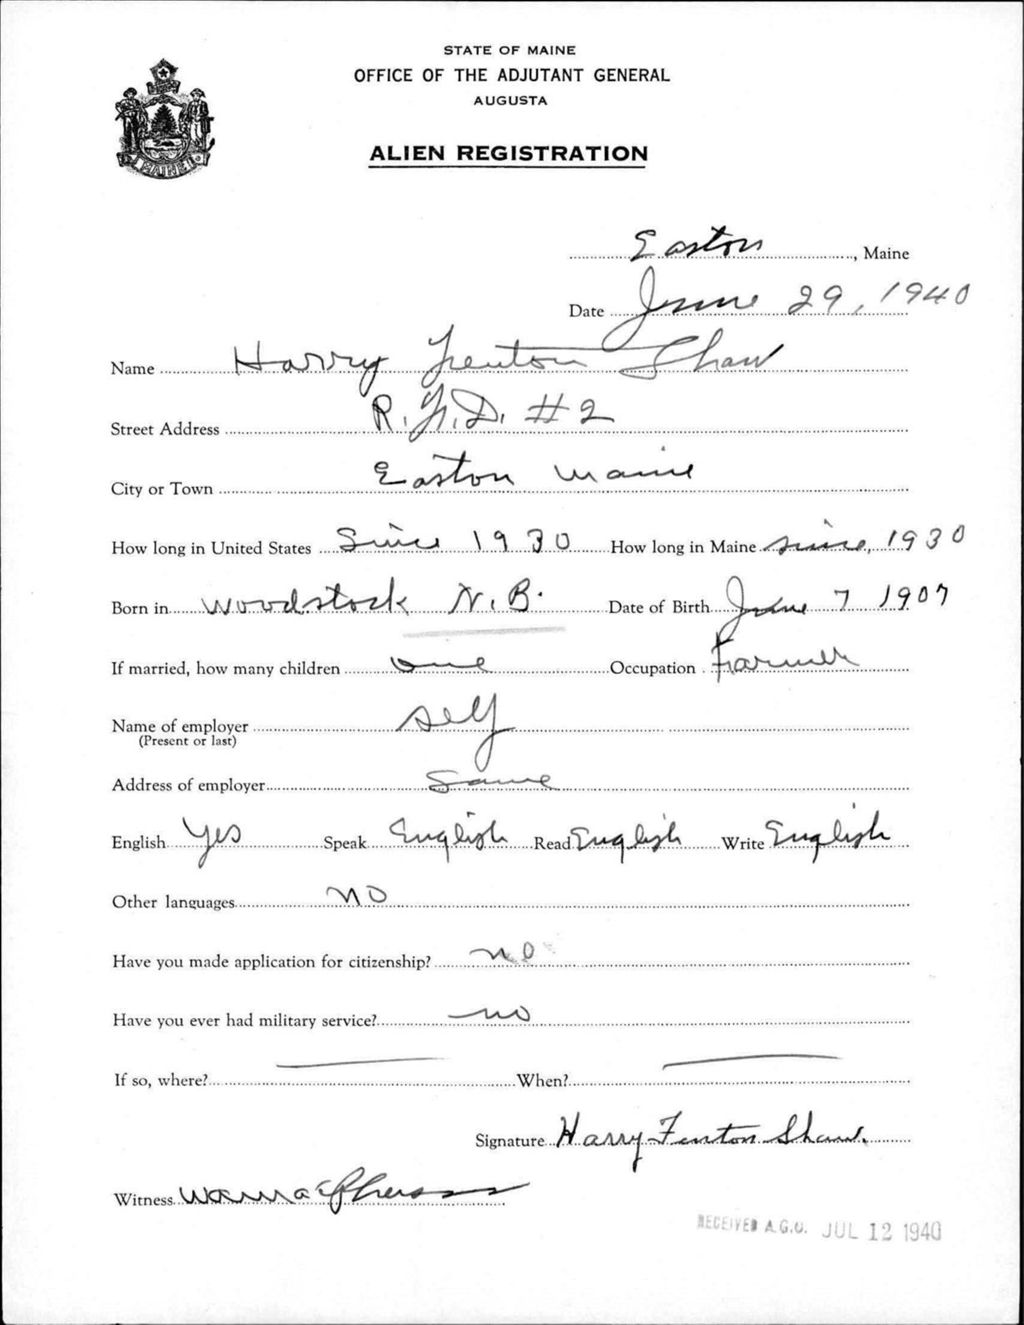 STATE OF MAINE
OFFICE OF THE ADJUTANT GENERAL
AUGUSTA
MAINE
ALIEN REGISTRATION
Easton, Maine
Date June 29, 1940
Name Harry Fenton Shaw
Street Address R.F.D. #2
City or Town Easton Maine
How long in United States Since 1930 How long in Maine since, 1930
Born in Woodstock N.B. Date of Birth June 7 1907
If married, how many children one Occupation Farmer
Name of employer self
(Present or last)
Address of employer Same
English Yes Speak English Read English Write English
Other languages no
Have you made application for citizenship? no
Have you ever had military service? no
If so, where? When?
Signature Harry Fenton Shaw.
Witness
RECEIVED A.G.O. JUL 12 1940